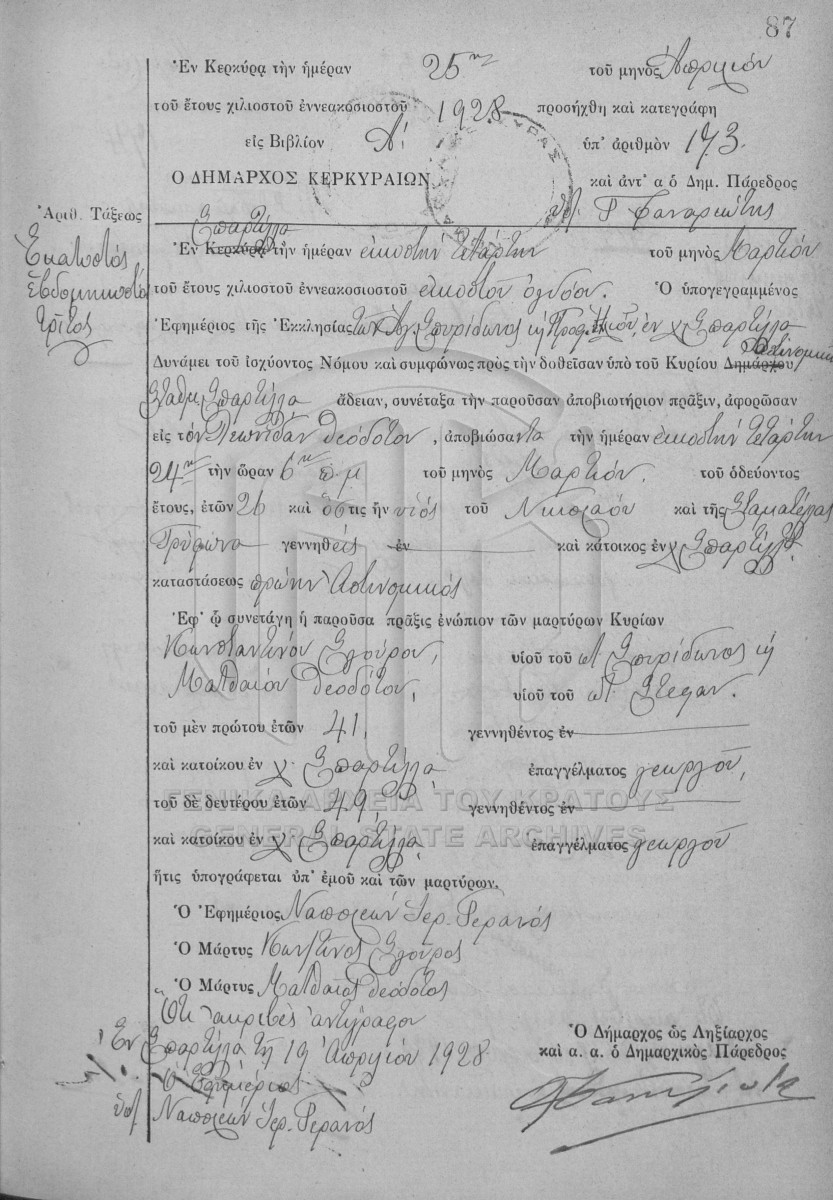 87
Ἐν Κερκύρᾳ τὴν ἡμέραν 25ην τοῦ μηνὸς Ἀπριλίου
τοῦ ἔτους χιλιοστοῦ ἐννεακοσιοστοῦ 1928 προσήχθη καὶ κατεγράφη
εἰς Βιβλίον Α! ὑπ' ἀριθμὸν 173.
Ο ΔΗΜΑΡΧΟΣ ΚΕΡΚΥΡΑΙΩΝ καὶ ἀντ' α ὁ Δημ. Πάρεδρος
Ἀριθ. Τάξεως
Σπαρτύλα
Ἑκατοστός
Ἑβδομηκοστός
τρίτος
Ἐν Κερκύρᾳ τὴν ἡμέραν εἰκοστὴν τετάρτην τοῦ μηνὸς Μαρτίου
τοῦ ἔτους χιλιοστοῦ ἐννεακοσιοστοῦ εἰκοστοῦ ὀγδόου. Ὁ ὑπογεγραμμένος
Ἐφημέριος τῆς Ἐκκλησίας τῶν Ἁγ. Σπυρίδωνος ἐν χ Σπαρτύλα
Δυνάμει τοῦ ἰσχύοντος Νόμου καὶ συμφώνως πρὸς τὴν δοθεῖσαν ὑπὸ τοῦ Κυρίου Δημάρχου
Σταθμ. Σπαρτύλα ἄδειαν, συνέταξα τὴν παροῦσαν ἀποβιωτήριον πρᾶξιν, ἀφορῶσαν
εἰς τὸν Λεωνίδαν Θεόδοτον, ἀποβιώσαντα τὴν ἡμέραν εἰκοστὴν τετάρτην
24ην τὴν ὥραν 6ην π.μ τοῦ μηνὸς Μαρτίου. τοῦ ὁδεύοντος
ἔτους, ἐτῶν 26 καὶ ὅστις ἦν υἱός τοῦ Νικολάου καὶ τῆς Σταματέλας
Τρύφωνα γεννηθείς ἐν καὶ κάτοικος ἐν χ Σπαρτύλα.
καταστάσεως πρώην Αστυνομικός
Ἐφ' ᾧ συνετάγη ἡ παροῦσα πρᾶξις ἐνώπιον τῶν μαρτύρων Κυρίων
Κωνσταντίνου Σγούρου, υἱοῦ τοῦ Σπυρίδωνος
Ματθαίου Θεοδότου, υἱοῦ τοῦ Στεφαν.
τοῦ μὲν πρώτου ἐτῶν 41, γεννηθέντος ἐν
καὶ κατοίκου ἐν χ. Σπαρτύλα ἐπαγγέλματος γεωργοῦ,
τοῦ δὲ δευτέρου ἐτῶν 49, γεννηθέντος ἐν
ΓΕΝΙΚΑ ΑΡΧΕΙΑ ΤΟΥ ΚΡΑΤΟΥΣ
GENERAL STATE ARCHIVES
καὶ κατοίκου ἐν χ Σπαρτύλα ἐπαγγέλματος γεωργοῦ
ἥτις ὑπογράφεται ὑπ' ἐμοῦ καὶ τῶν μαρτύρων.
Ὁ Ἐφημέριος Ναπολέων Ἱερ. Γερανός
Ὁ Μάρτυς Κων/τῖνος Σγούρος
Ὁ Μάρτυς Ματθαῖος Θεόδοτος
Ὅτι ἀκριβές ἀντίγραφον
Ἐν Σπαρτύλα τῇ 19 Ἀπριλίου 1928
Ὁ Δήμαρχος ὡς Ληξίαρχος
καὶ α. α. ὁ Δημαρχικὸς Πάρεδρος
Ὁ Ἐφημέριος
Ναπολέων Ἱερ. Γερανός